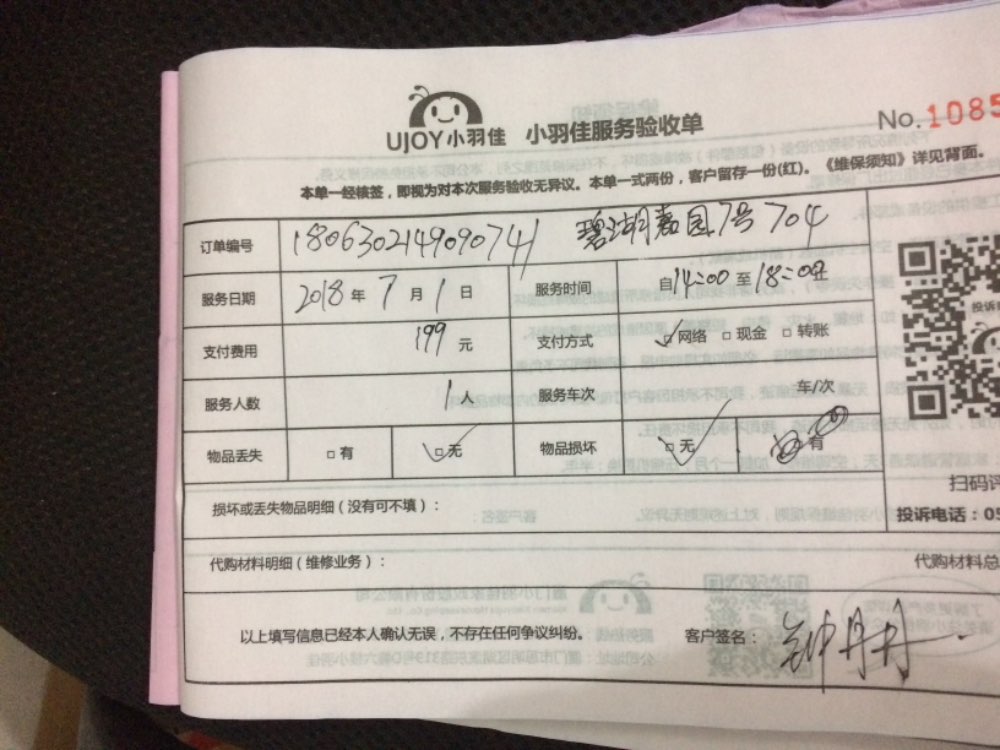 UJOY小羽佳 小羽佳服务验收单
No.1085
本单一经核签，即视为对本次服务验收无异议。本单一式两份，客户留存一份(红)。《维保须知》详见背面。
订单编号 1806302149090741 碧湖嘉园7号704
服务日期 2018年7月1日 服务时间 自14:00至18:00
支付费用 199元 支付方式 □网络 □现金 □转账
服务人数 1人 服务车次 车/次
物品丢失 □有 □无 物品损坏 □无 有
损坏或丢失物品明细（没有可不填）：
扫码评
投诉电话：05
代购材料明细（维修业务）：
代购材料总
以上填写信息已经本人确认无误，不存在任何争议纠纷。 客户签名：钟丹丹
投诉